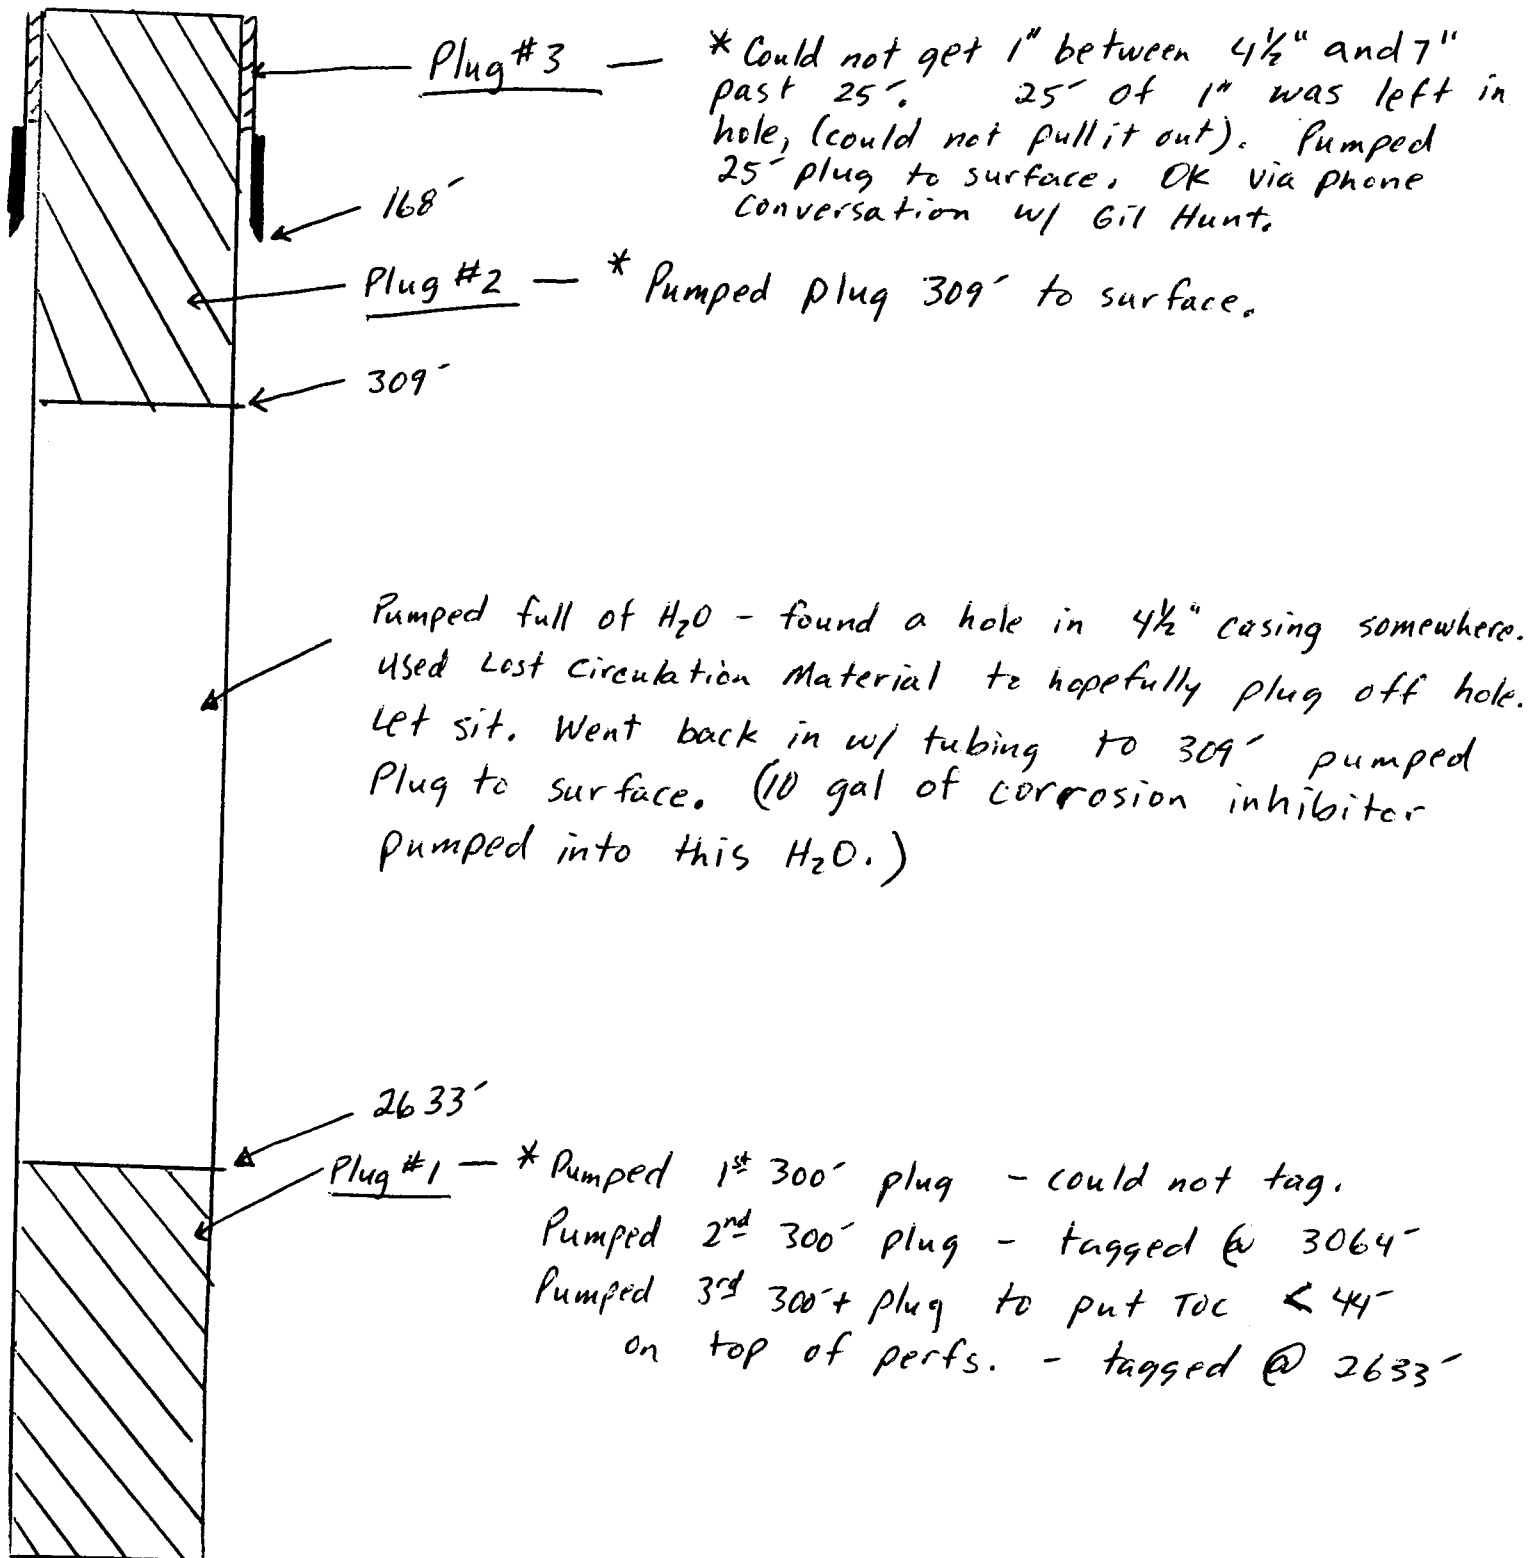 Plug #3 — * Could not get 1" between 4½" and 7"
past 25'. 25' of 1" was left in
hole, (could not pull it out). Pumped
25' plug to surface. OK via phone
conversation w/ Gil Hunt.
168'
Plug #2 — * Pumped plug 309' to surface.
309'
Pumped full of H₂O - found a hole in 4½" casing somewhere.
Used Lost Circulation Material to hopefully plug off hole.
Let sit. Went back in w/ tubing to 309' pumped
Plug to surface. (10 gal of corrosion inhibitor
pumped into this H₂O.)
2633'
Plug #1 — * Pumped 1st 300' plug - could not tag.
Pumped 2nd 300' plug - tagged @ 3064'
Pumped 3rd 300'+ plug to put TOC < 44'
on top of perfs. - tagged @ 2633'